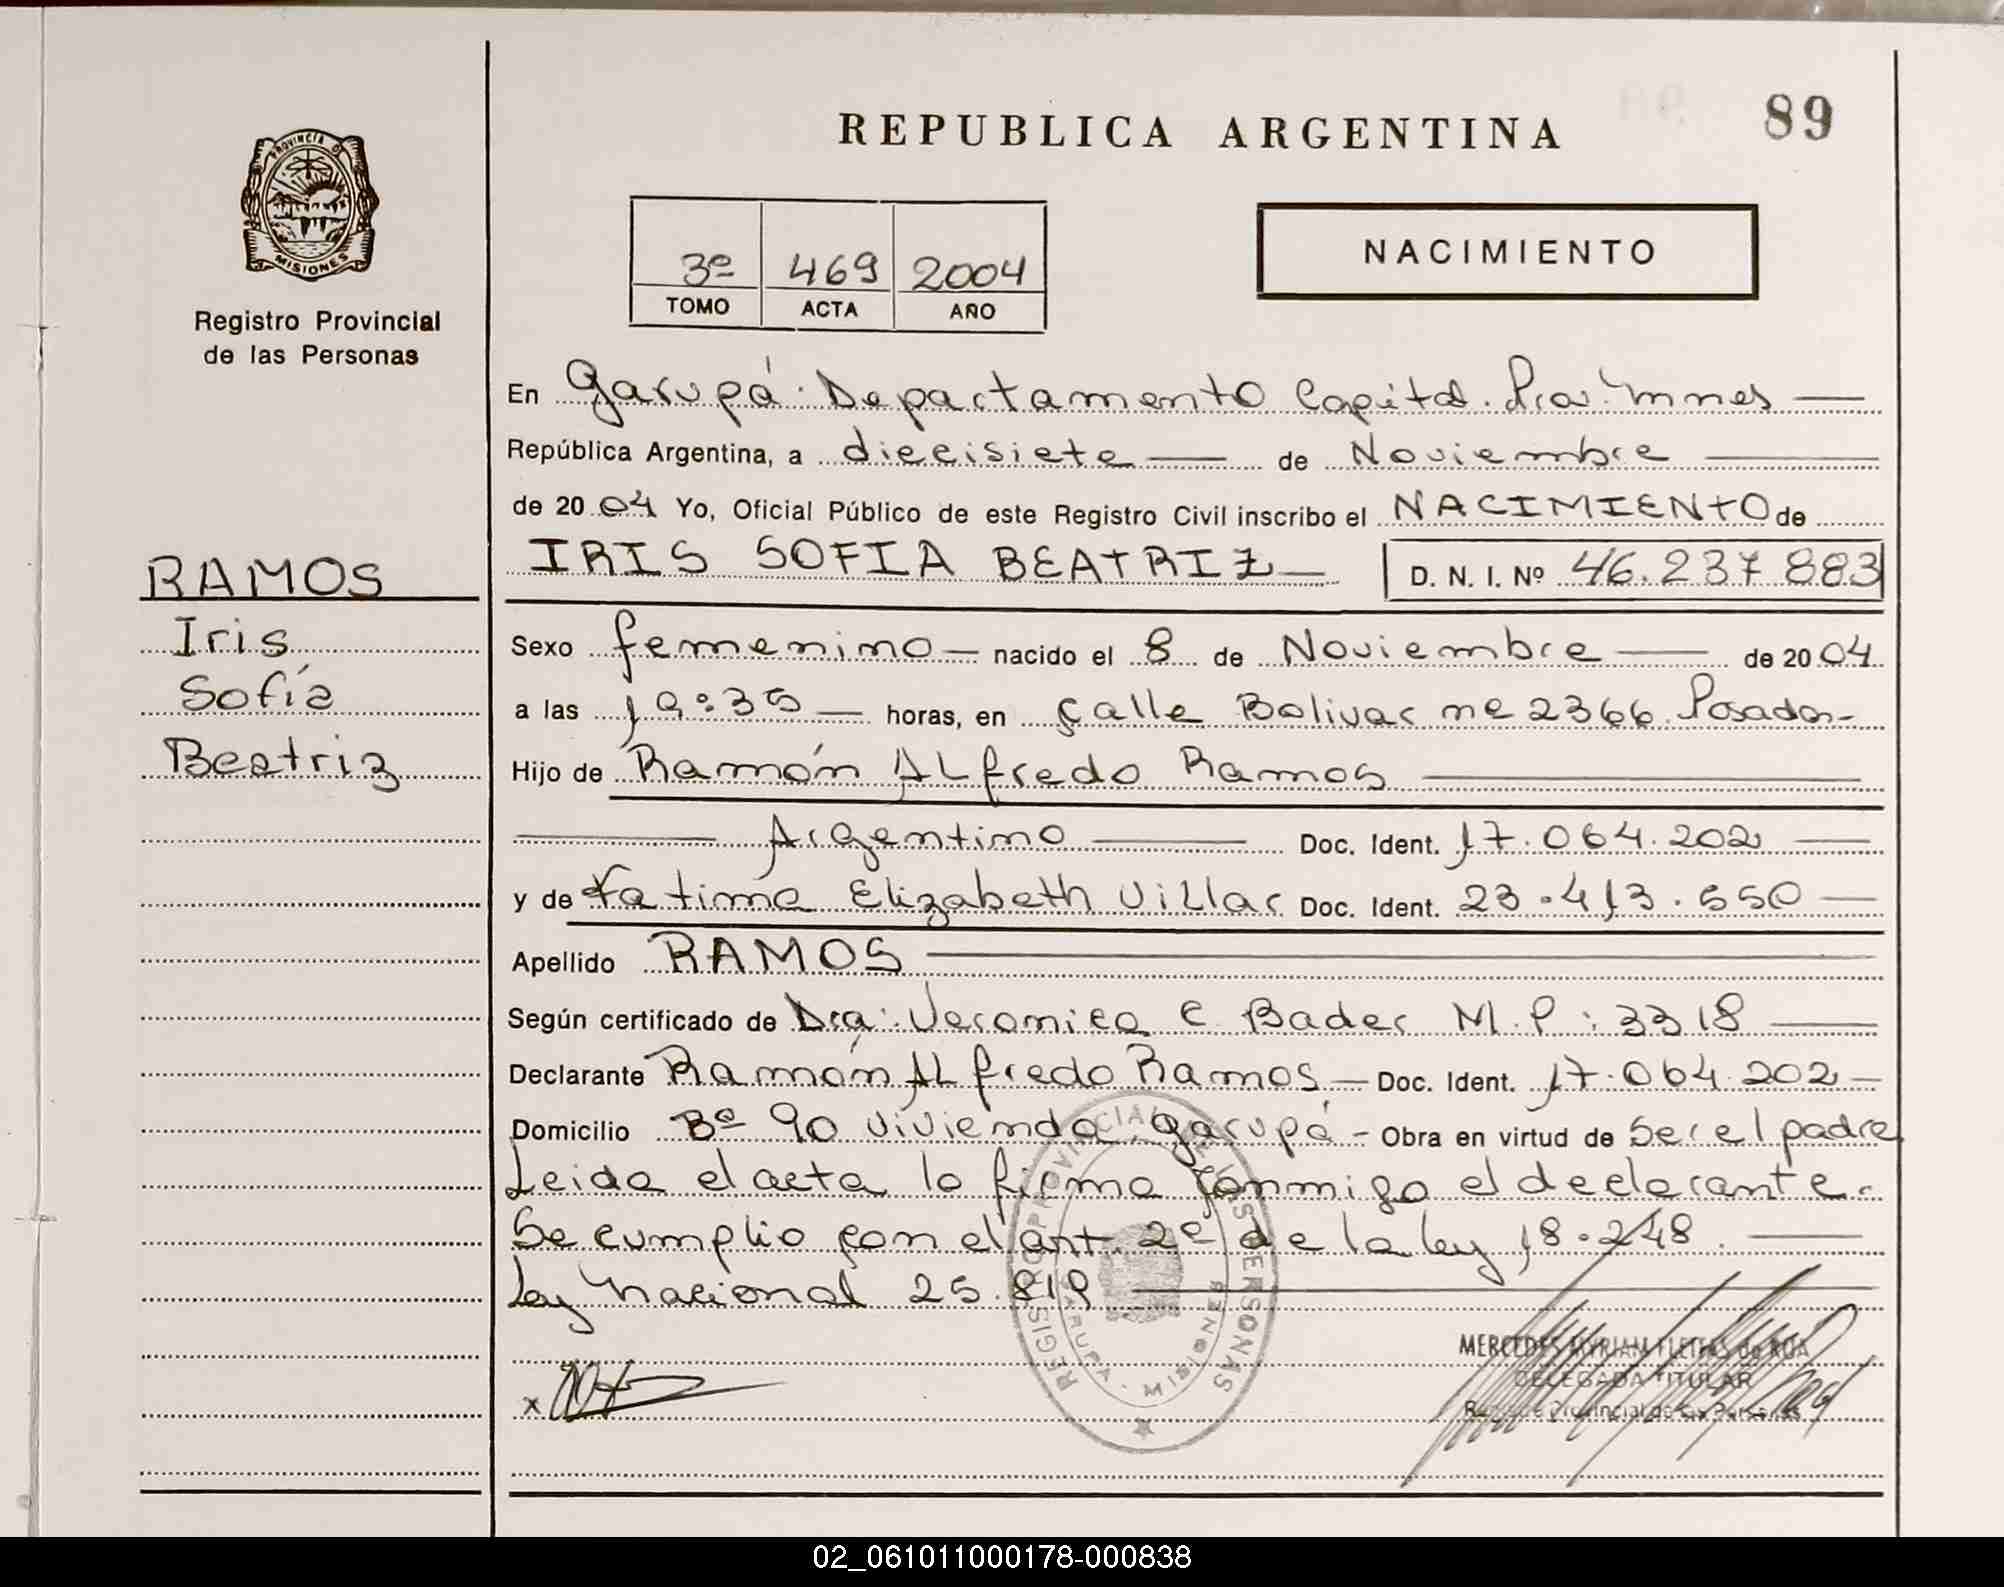 REPUBLICA ARGENTINA
89
PROVINCIA DE
MISIONES
Registro Provincial
de las Personas
3º 469 2004
TOMO ACTA AÑO
NACIMIENTO
En Garupá. Departamento Capital. Pcia. Mnes
República Argentina, a diecisiete de Noviembre
de 2004 Yo, Oficial Público de este Registro Civil inscribo el NACIMIENTO de
IRIS SOFIA BEATRIZ D. N. I. Nº 46.237.883
RAMOS
Iris
Sofía
Beatriz
Sexo femenino nacido el 8 de Noviembre de 2004
a las 19:35 horas, en Calle Bolivar nº 2366. Posadas
Hijo de Ramón Alfredo Ramos
Argentino Doc. Ident. 17.064.202
y de Fatima Elizabeth Villar Doc. Ident. 23.413.550
Apellido RAMOS
Según certificado de Dra. Veronica C. Bader M.P: 3318
Declarante Ramón Alfredo Ramos Doc. Ident. 17.064.202
Domicilio Bº 90 vivienda, Garupá - Obra en virtud de Ser el padre
Leida el acta la firma conmigo el declarante.
Se cumplio con el art. 2º de la ley 18.248.
Ley Nacional 25.819
REGISTRO PROVINCIAL DE LAS PERSONAS
GARUPA - MISIONES
x
MERCEDES MYRIAM FLEITAS de ROA
DELEGADA TITULAR
Provincial de las Personas
02_061011000178-000838